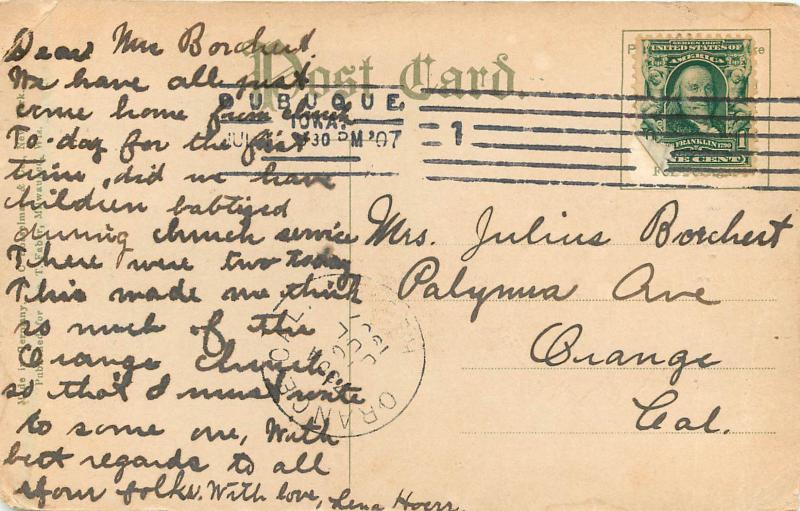 Dear Mrs Borchert.
We have all just
come home from church
To-day for the first
time, did we have
children babtized
during church service
There were two today
This made me think
so much of the
Orange Church,
so that I must write
to some one, With
best regards to all
your folks. With love, Lena Hoerr
Post Card.
DUBUQUE,
IOWA.
30 PM '07
1
SERIES 1902
UNITED STATES OF
AMERICA
FRANKLIN 1790
1
CENT
Mrs. Julius Borchert
Palymra Ave
Orange
Cal.
ORANGE CAL.
Made in Germany